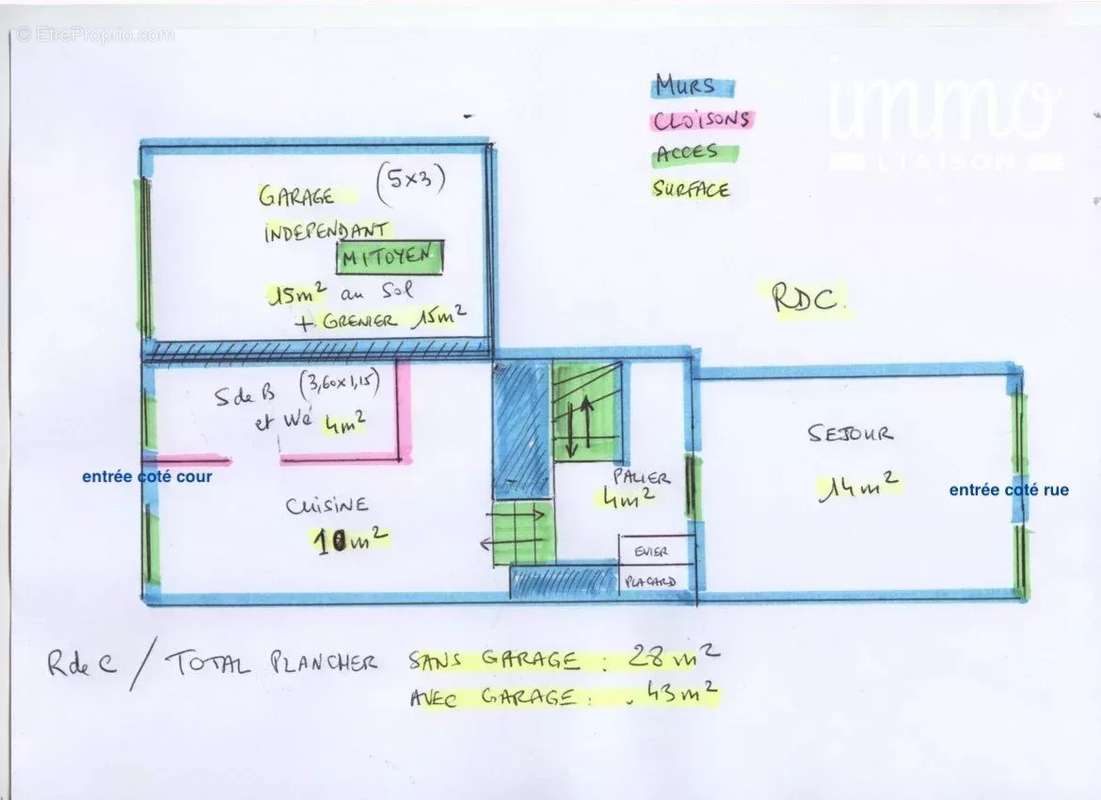 © EtreProprio.com
immo
LIAISON
MURS
CLOISONS
ACCES
SURFACE
RDC.
GARAGE (5x3)
INDEPENDANT
MITOYEN
15m² au Sol
+ GRENIER 15m²
S de B (3,60x1,15)
et Wc 4m²
entrée coté cour
CUISINE
10m²
PALIER
4m²
EVIER
PLACARD
SEJOUR
14m²
entrée coté rue
R de C / TOTAL PLANCHER SANS GARAGE : 28m²
AVEC GARAGE : 43m²